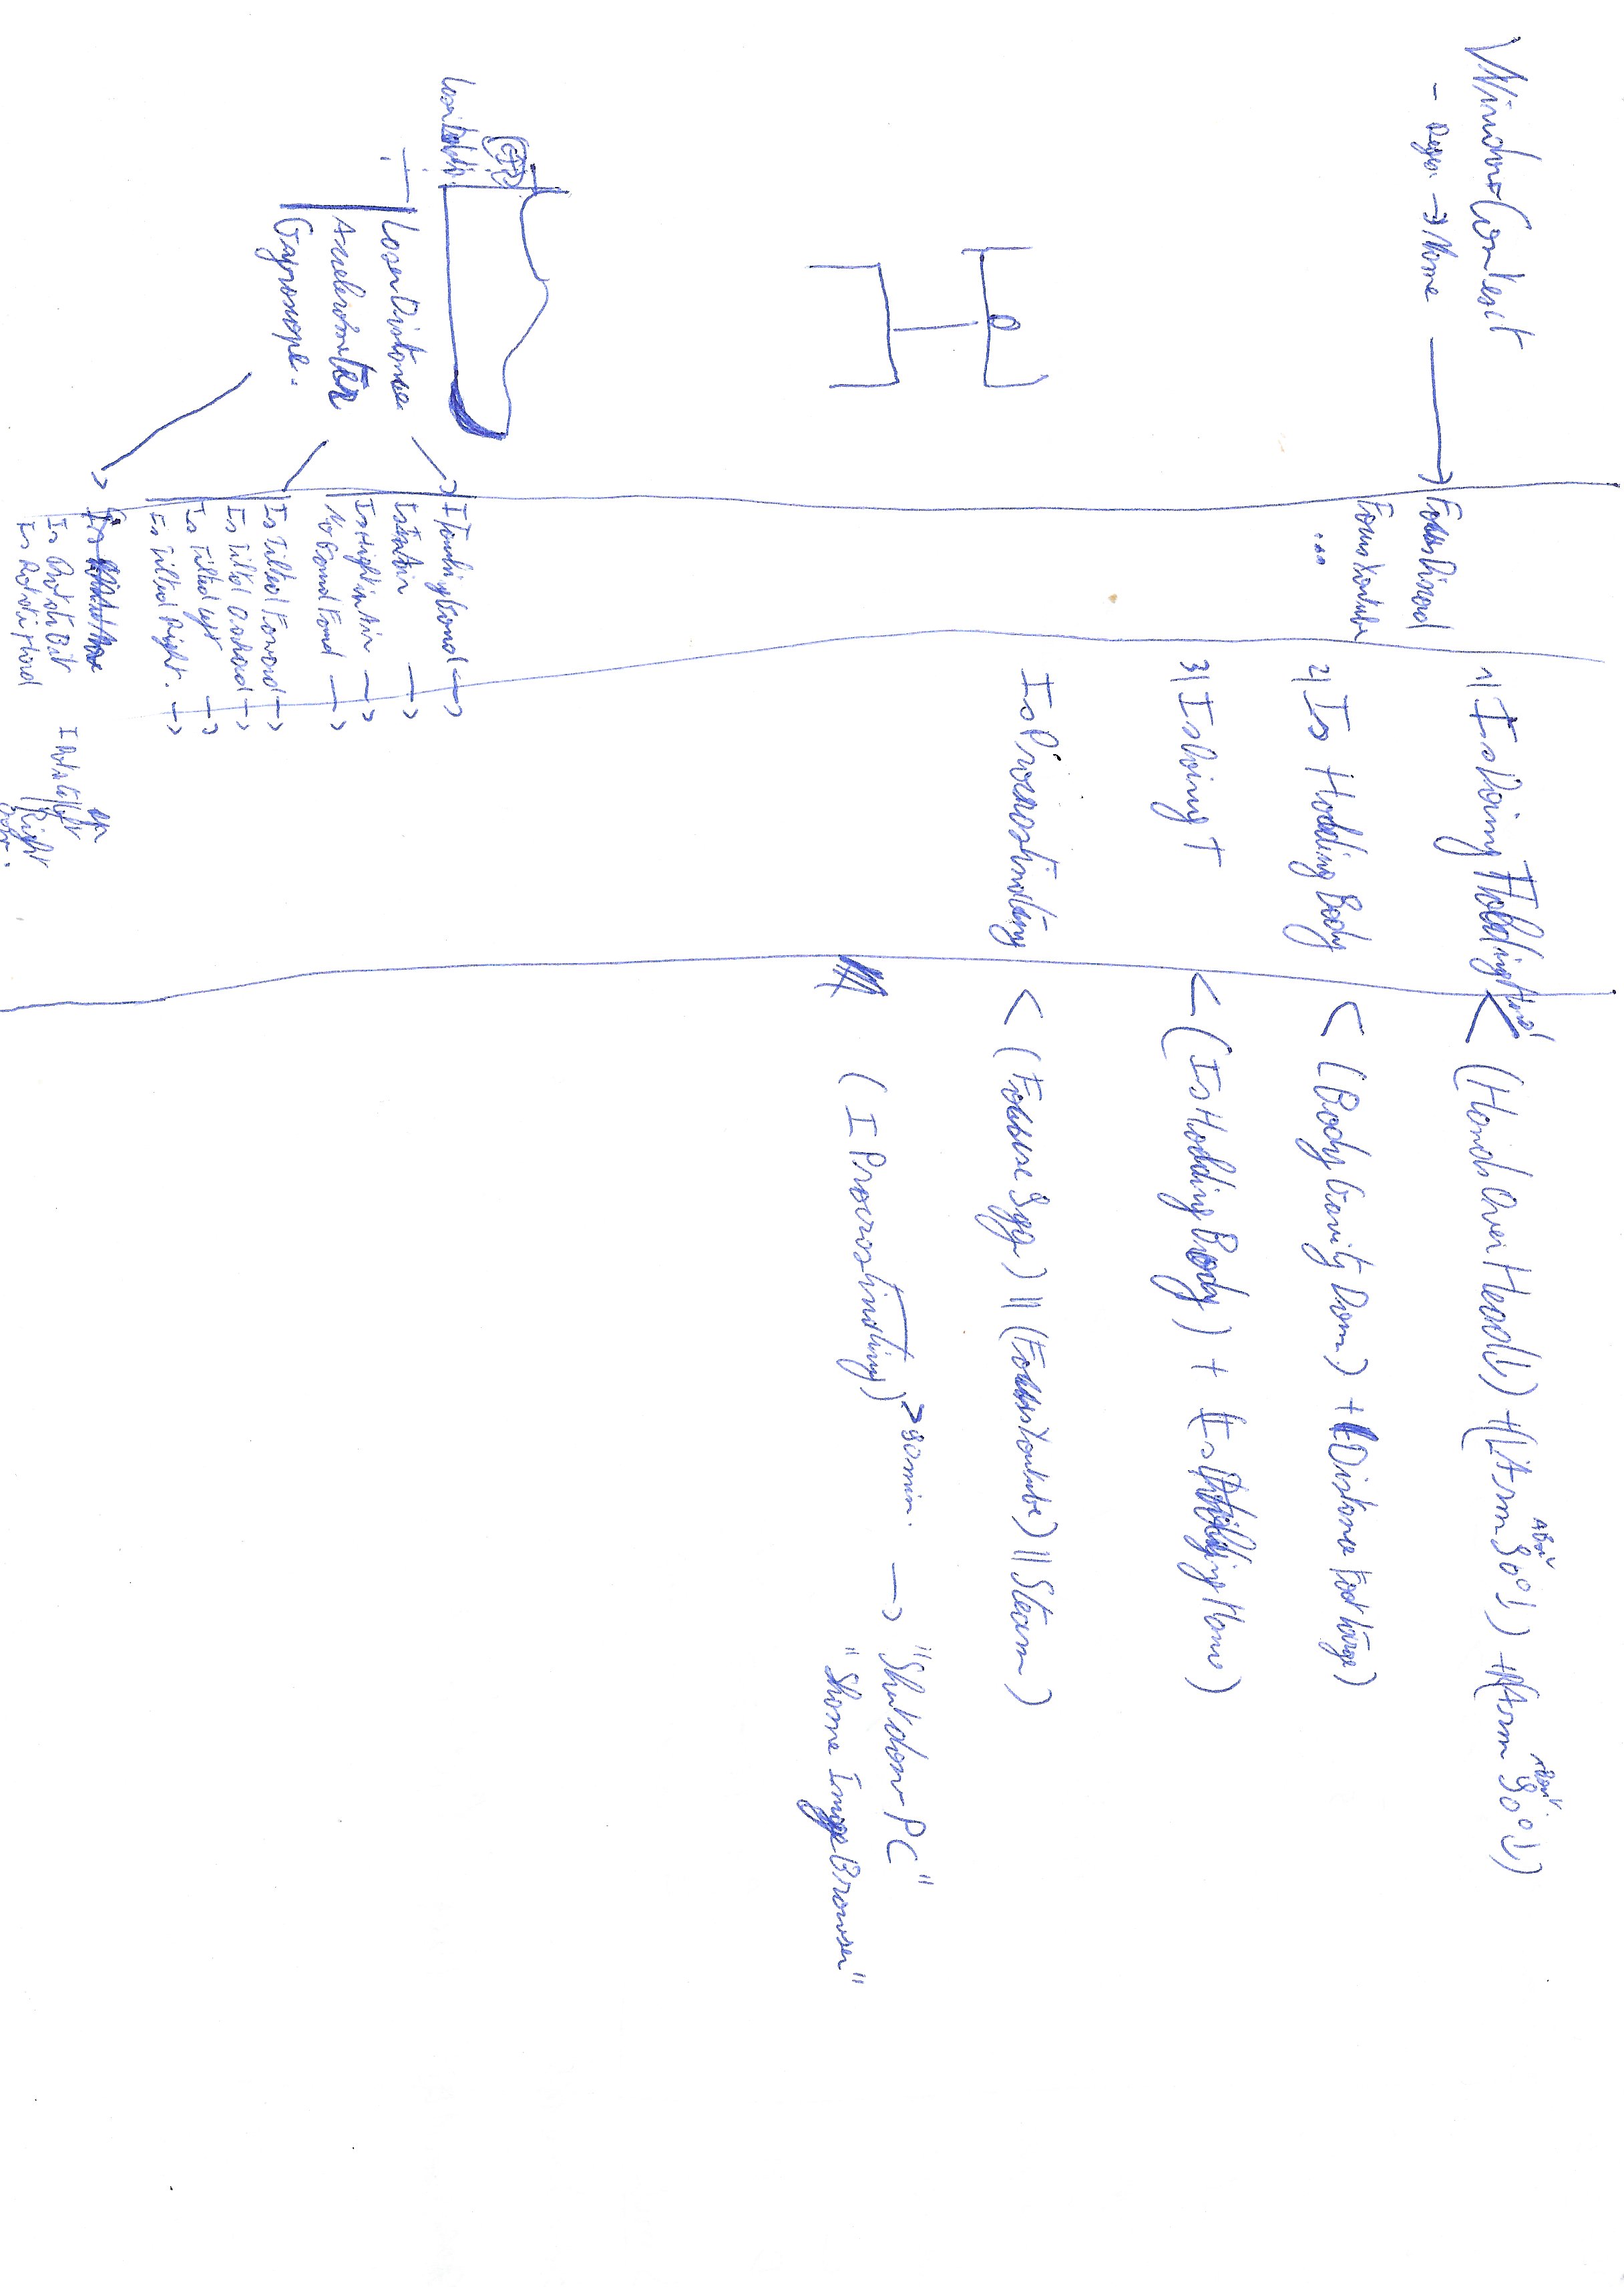 Window Context
- Regex. → Name
Focus Discord
Focus Youtube
...
1) Is Doing Holding Hand < (Hands Over Head ↓) + (L Arm 90° ↓) + (R Arm 90° ↓)
2) Is Hodding Body < (Body Gravity Down) + (Distance Foot Large)
3) Is Doing T < (Is Hodding Body) + (Is Hodding Hand)
Is Procrastinating < (Focus 9gg) || (Focus Youtube) || Steam)
(I Procrastinating) > 90 min. → "Shutdown PC"
"Shame Image Browser"
Laser Distance
Accelerometer
Gyroscope.
I Touching Ground →
Is In Air →
Is Hight in Air →
No Ground Found →
Is Tilted Forward →
Is Tilted Backward →
Is Tilted Left →
Is Tilted Right. →
Is Rotate Bit
Is Rotate Hard
I Rotate Left
Right
Down.